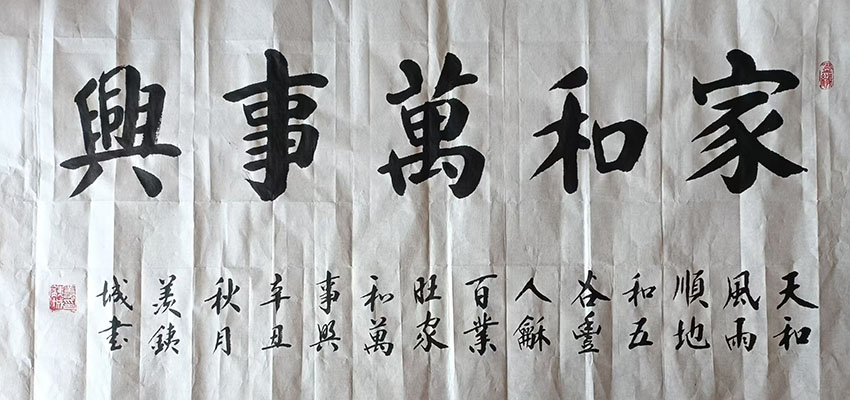 家和萬事興
天和
風雨
順地
和五
谷豐
人龢
百業
旺家
和萬
事興
辛丑
秋月
城书